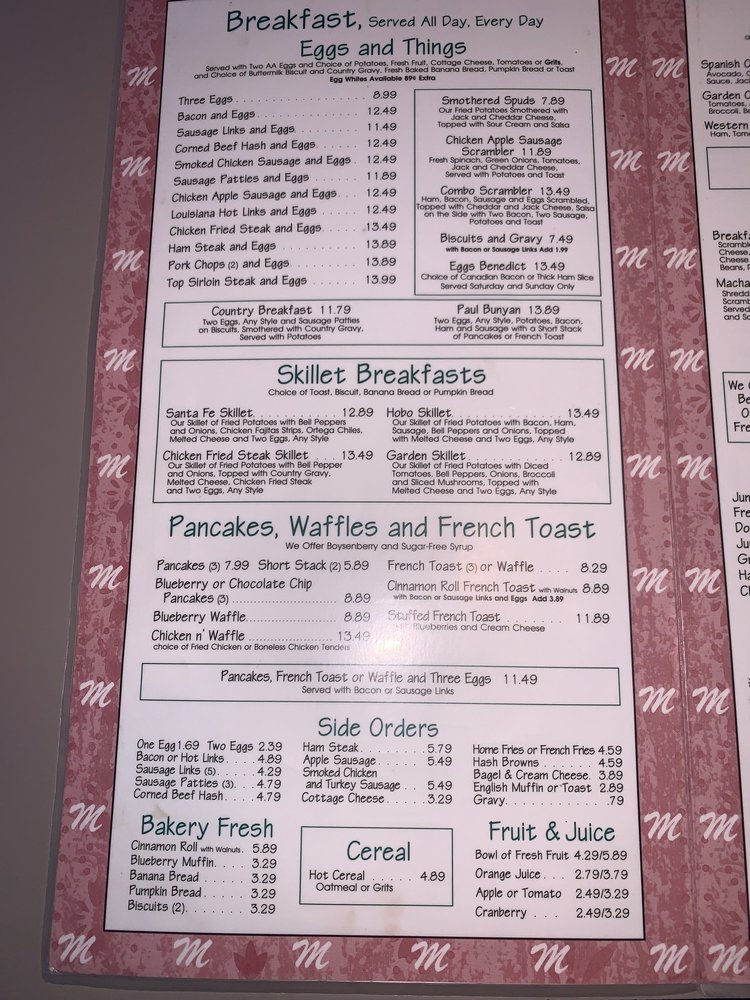 Breakfast, Served All Day, Every Day
Eggs and Things
Served with Two AA Eggs and Choice of Potatoes, Fresh Fruit, Cottage Cheese, Tomatoes or Grits,
and Choice of Buttermilk Biscuit and Country Gravy, Fresh Baked Banana Bread, Pumpkin Bread or Toast
Egg Whites Available 89¢ Extra
Three Eggs 8.99
Bacon and Eggs 12.49
Sausage Links and Eggs 11.49
Corned Beef Hash and Eggs 12.49
Smoked Chicken Sausage and Eggs 12.49
Sausage Patties and Eggs 11.89
Chicken Apple Sausage and Eggs 12.49
Louisiana Hot Links and Eggs 12.49
Chicken Fried Steak and Eggs 13.49
Ham Steak and Eggs 13.89
Pork Chops (2) and Eggs 13.89
Top Sirloin Steak and Eggs 13.99
Smothered Spuds 7.89
Our Fried Potatoes Smothered with
Jack and Cheddar Cheese,
Topped with Sour Cream and Salsa
Chicken Apple Sausage
Scrambler 11.89
Fresh Spinach, Green Onions, Tomatoes,
Jack and Cheddar Cheese,
Served with Potatoes and Toast
Combo Scrambler 13.49
Ham, Bacon, Sausage and Eggs Scrambled,
Topped with Cheddar and Jack Cheese, Salsa
on the Side with Two Bacon, Two Sausage,
Potatoes and Toast
Biscuits and Gravy 7.49
with Bacon or Sausage Links Add 1.99
Eggs Benedict 13.49
Choice of Canadian Bacon or Thick Ham Slice
Served Saturday and Sunday Only
Country Breakfast 11.79
Two Eggs, Any Style and Sausage Patties
on Biscuits, Smothered with Country Gravy,
Served with Potatoes
Paul Bunyan 13.89
Two Eggs, Any Style, Potatoes, Bacon,
Ham and Sausage with a Short Stack
of Pancakes or French Toast
Skillet Breakfasts
Choice of Toast, Biscuit, Banana Bread or Pumpkin Bread
Santa Fe Skillet 12.89
Our Skillet of Fried Potatoes with Bell Peppers
and Onions, Chicken Fajitas Strips, Ortega Chiles,
Melted Cheese and Two Eggs, Any Style
Chicken Fried Steak Skillet 13.49
Our Skillet of Fried Potatoes with Bell Pepper
and Onions, Topped with Country Gravy,
Melted Cheese, Chicken Fried Steak
and Two Eggs, Any Style
Hobo Skillet 13.49
Our Skillet of Fried Potatoes with Bacon, Ham,
Sausage, Bell Peppers and Onions, Topped
with Melted Cheese and Two Eggs, Any Style
Garden Skillet 12.89
Our Skillet of Fried Potatoes with Diced
Tomatoes, Bell Peppers, Onions, Broccoli
and Sliced Mushrooms, Topped with
Melted Cheese and Two Eggs, Any Style
Pancakes, Waffles and French Toast
We Offer Boysenberry and Sugar-Free Syrup
Pancakes (3) 7.99 Short Stack (2) 5.89
Blueberry or Chocolate Chip
Pancakes (3) 8.89
Blueberry Waffle 8.89
Chicken n' Waffle 13.49
choice of Fried Chicken or Boneless Chicken Tenders
French Toast (3) or Waffle 8.29
Cinnamon Roll French Toast with Walnuts 8.89
with Bacon or Sausage Links and Eggs Add 3.89
Stuffed French Toast 11.89
with Blueberries and Cream Cheese
Pancakes, French Toast or Waffle and Three Eggs 11.49
Served with Bacon or Sausage Links
Side Orders
One Egg 1.69 Two Eggs 2.39
Bacon or Hot Links 4.89
Sausage Links (5) 4.29
Sausage Patties (3) 4.79
Corned Beef Hash 4.79
Ham Steak 5.79
Apple Sausage 5.49
Smoked Chicken
and Turkey Sausage 5.49
Cottage Cheese 3.29
Home Fries or French Fries 4.59
Hash Browns 4.59
Bagel & Cream Cheese 3.89
English Muffin or Toast 2.89
Gravy .79
Bakery Fresh
Cinnamon Roll with Walnuts 5.89
Blueberry Muffin 3.29
Banana Bread 3.29
Pumpkin Bread 3.29
Biscuits (2) 3.29
Cereal
Hot Cereal 4.89
Oatmeal or Grits
Fruit & Juice
Bowl of Fresh Fruit 4.29/5.89
Orange Juice 2.79/3.79
Apple or Tomato 2.49/3.29
Cranberry 2.49/3.29
Spanish
Avocado,
Sauce,
Garden
Tomatoes,
Broccoli,
Western
Ham,
Cheese,
Cheese
Beans,
Served
We